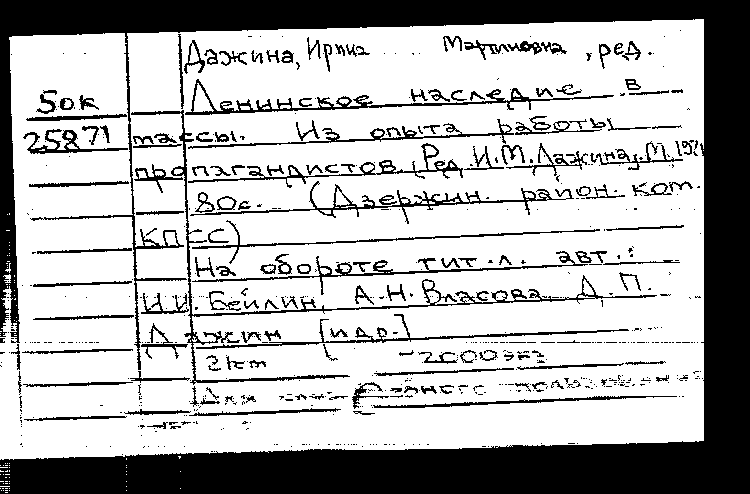 Дажина, Ирина Мартиновна, ред.
50к Ленинское наследие в
25871 массы. Из опыта работы
пропагандистов. Ред. И.М. Дажина. М., 1971
80с. (Дзержин. район. ком.
КПСС)
На обороте тит. л. авт.:
И.И. Бейлин, А.Н. Власова, Д.П.
Дажин [и др.]
2km -2000экз
Для пользования